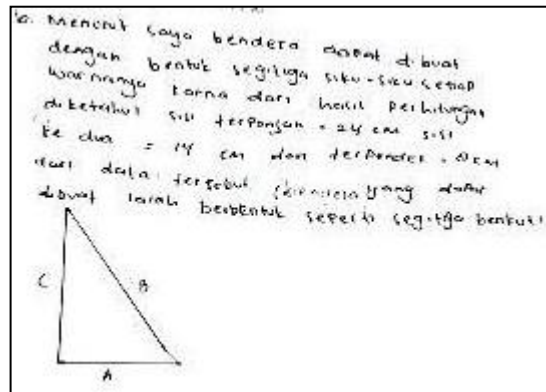 b. Menurut saya bendera dapat dibuat
dengan bentuk segitiga siku-siku setiap
warnanya karna dari hasil perhitungan
diketahui sisi terpanjang = 24 cm sisi
ke dua = 14 cm dan terpendek = 8 cm
dari data tersebut bendera yang dapat
dibuat ialah berbentuk seperti segitiga berikut:
C
B
A